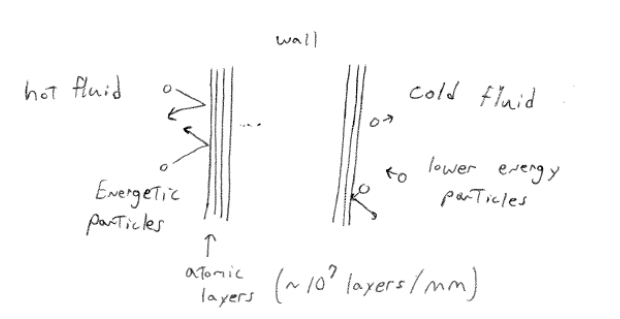 wall
hot fluid
cold fluid
...
lower energy
particles
Energetic
particles
atomic
layers (~10⁷ layers/mm)